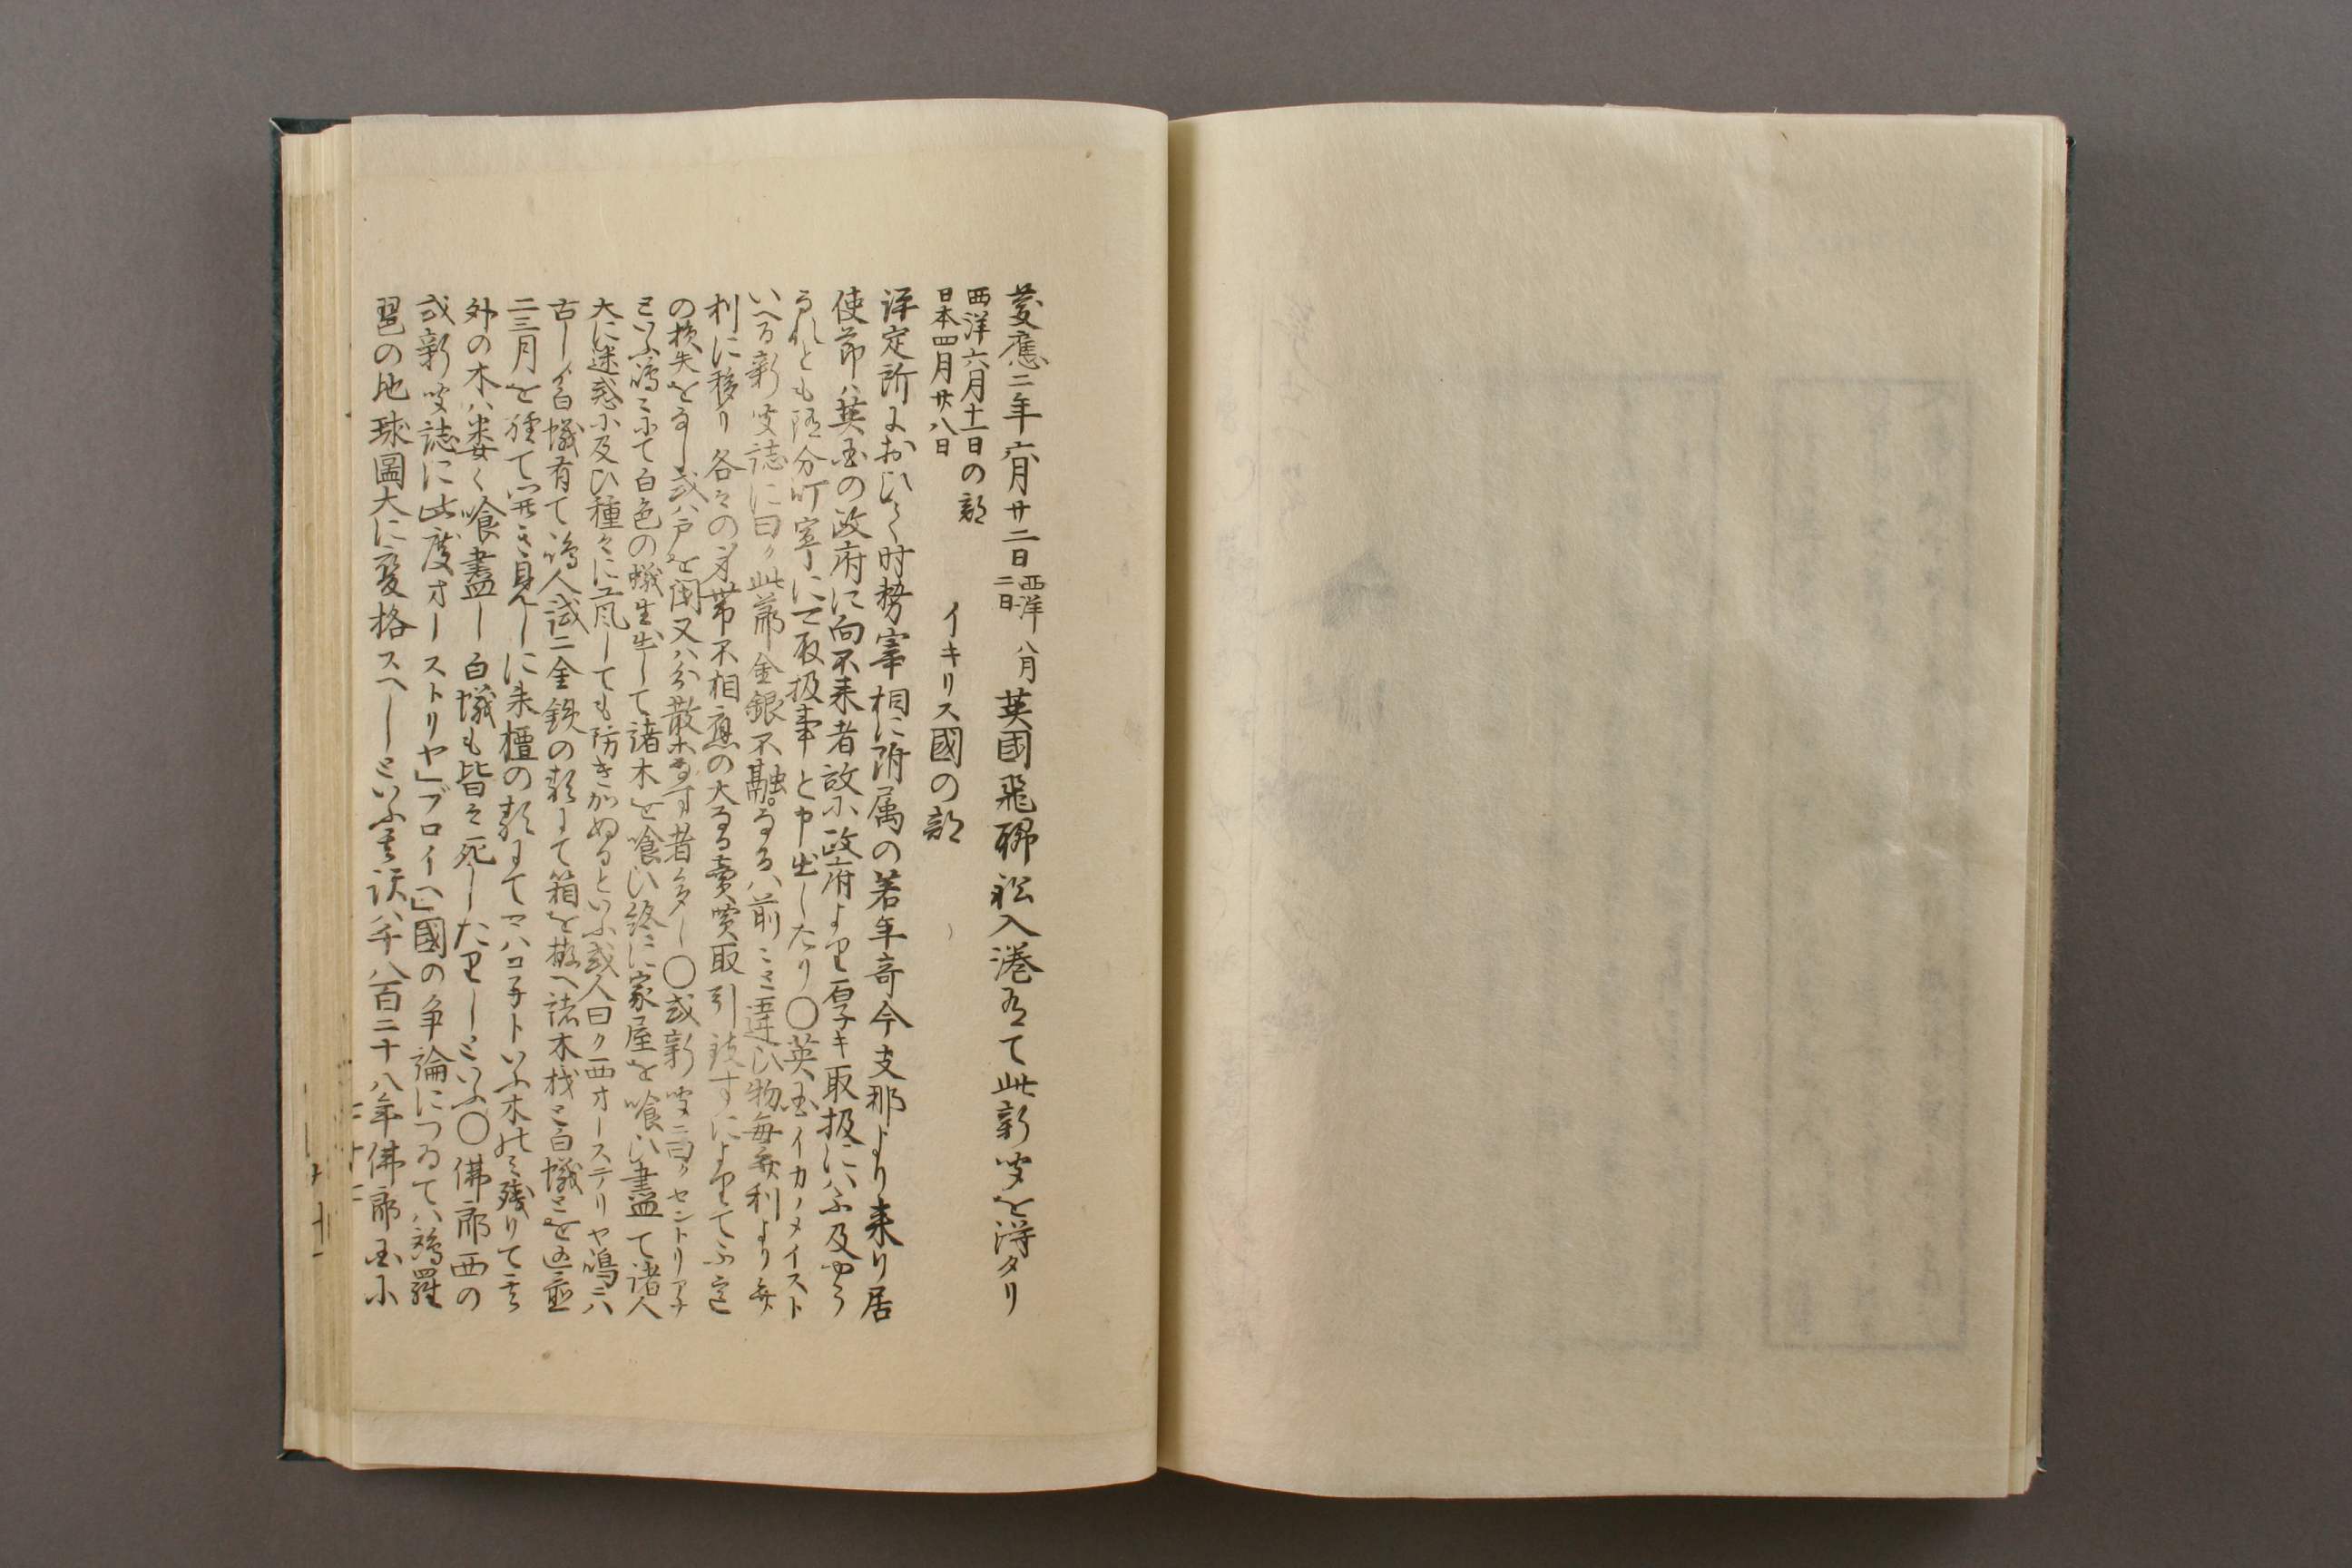 慶應二年六月廿二日西洋八月二日英國飛脚舩入港有て此新聞を得タリ
西洋六月十一日の部
日本四月廿八日
イキリス國の部
評定所におひて时勢宰相に附属の若年寄今支那より来り居
使節ハ英国の政府に向不来者故小政府より厚キ取扱にハ不及
なれとも随分叮寧に取扱事と申出したり〇英国イカノメイスト
いへる新聞誌に曰ク此節金銀不融なるハ前にミ違ひ物毎無利より無
利に移り各々の身帯不相應の大なる賣買取引致すによりて不定
の損失をなし或ハ戸を閉又ハ分散する者多し〇或新聞ニ曰クセントリアナ
といふ嶋にて白色の蟻生出して諸木を喰ひ終に家屋を喰ひ盡て諸人
大に迷惑に及ひ種々に工風しても防きかぬるといふ或人曰ク西オーステリヤ嶋ニハ
古しイ白蟻有て嶋人試ニ金鉄の類にて箱を拵へ諸木材と白蟻とを
二三月を経て開き見しに朱檀の類にてマハコ子トいふ木のミ残りて其
外の木ハ悉く喰盡し白蟻も皆々死したりしといふ〇佛郎西の
或新聞誌に此度オーストリヤ」プロイヘ」國の争論につゐてハ欧羅
巴の地球圖大に変格スヘしといふ其訳ハ千八百二十八年佛郎国に